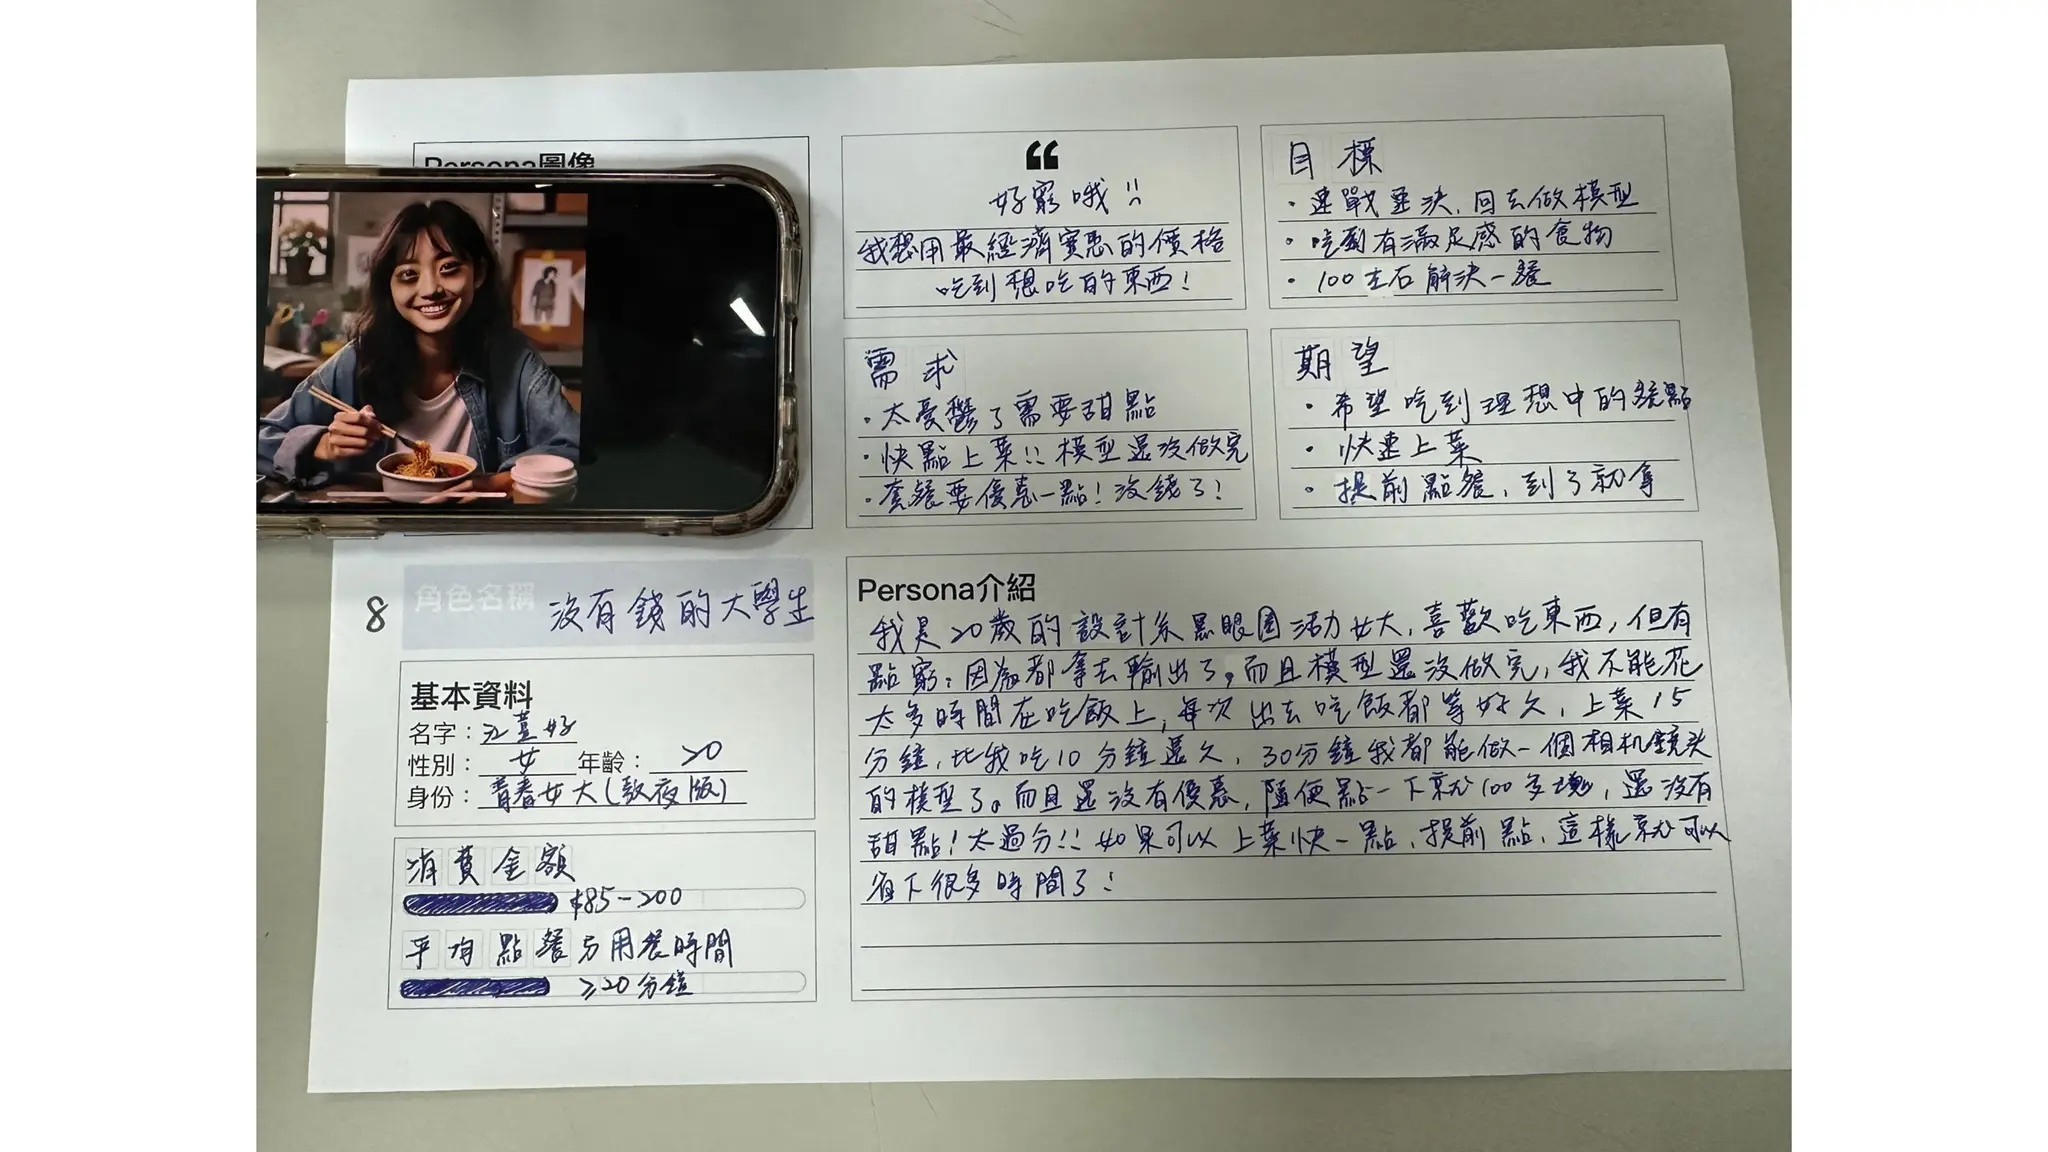 Persona圖像
“
好窮哦 !!
我想用最經濟實惠的價格
吃到想吃的東西！
目標
・速戰速決，回去做模型
・吃到有滿足感的食物
・100左右解決一餐
需求
・太憂鬱了需要甜點
・快點上菜!! 模型還沒做完
・套餐要優惠一點！沒錢了！
期望
・希望吃到理想中的餐點
・快速上菜
・提前點餐，到了就拿
8
角色名稱 沒有錢的大學生
基本資料
名字：江 好
性別：女 年齡：20
身份：青春女大(熬夜版)
消費金額
$85-200
平均點餐方用餐時間
≥20分鐘
Persona介紹
我是20歲的設計系黑眼圈活力女大，喜歡吃東西，但有
點窮，因為都拿去輸出了。而且模型還沒做完，我不能花
太多時間在吃飯上，每次出去吃飯都等好久，上菜15
分鐘，比我吃10分鐘還久，30分鐘我都能做一個相机鏡头
的模型了。而且還沒有優惠，隨便點一下就100多塊，還沒有
甜點！太過分!! 如果可以上菜快一點，提前點，這樣就可以
省下很多時間了！